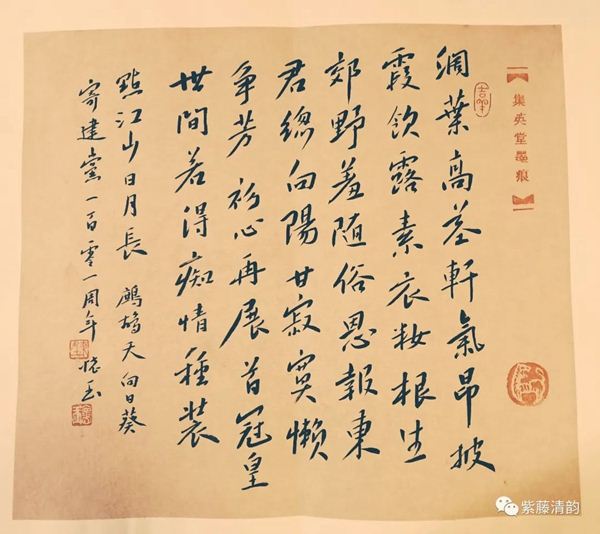 集英堂墨痕
濶葉高莖軒氣昂披
霞飲露素衣粧根生
郊野羞随俗恩報東
君總向陽甘寂寞懶
争芳初心再展首冠皇
世間若得痴情種装
點江山日月長 鷓鴣天 向日葵
寄建黨一百零一周年 懷玉
紫藤清韵